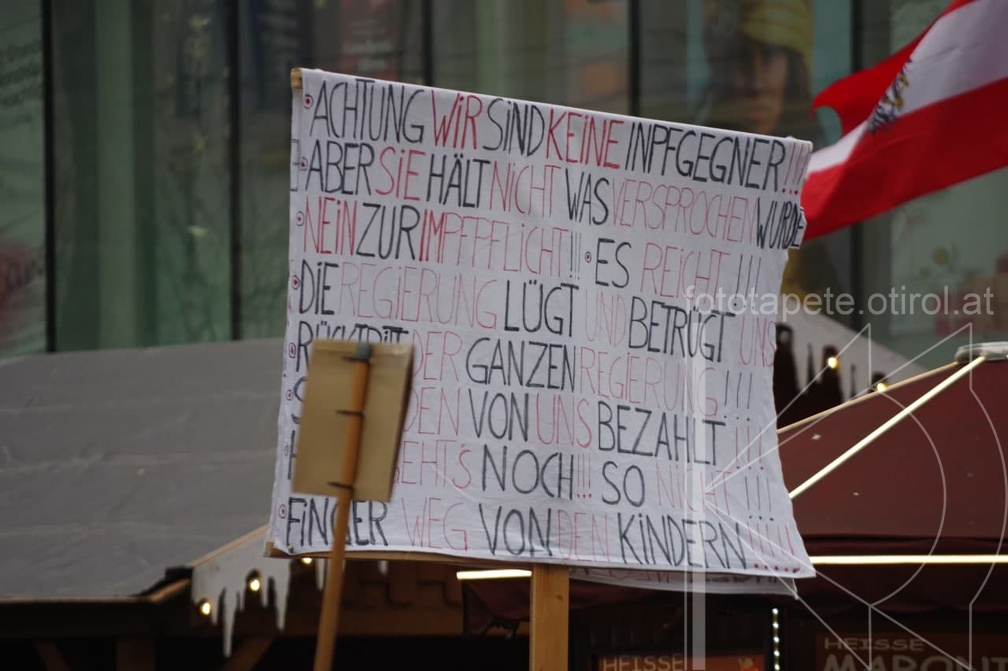 ACHTUNG WiR SiND KEiNE INPFGEGNER!!!
ABER SiE HÄLT NiCHT WAS VERSPROCHEN WURDE
NEiN ZUR IMPFPFLICHT!!! ES REICHT!!!
DIE REGIERUNG LÜGT UND BETRÜGT UNS
RÜCKTRITT DER GANZEN REGIERUNG!!!
DEN VON UNS BEZAHLT!!!
GEHTS NOCH!!! SO NICHT!!!
FINGER WEG VON DEN KINDERN!!!!
fototapete.otirol.at
HEISSE
HEISSE
MARONI